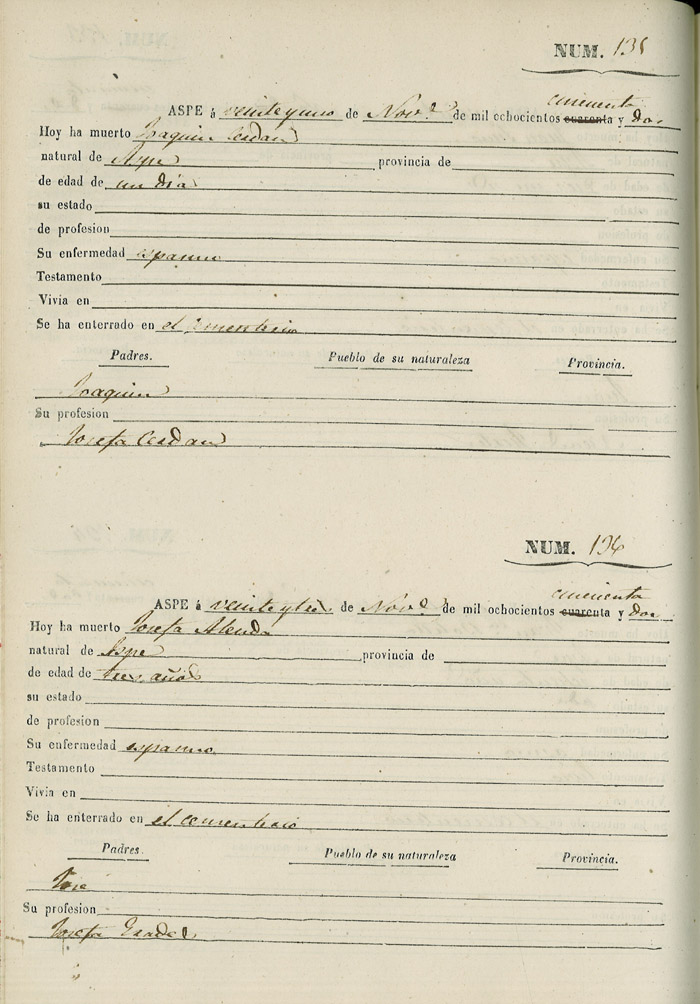 NUM. 135
cincuenta
ASPE á veinteyuno de Nov.e de mil ochocientos cuarenta y dos
Hoy ha muerto Joaquin Cerdan
natural de Aspe provincia de
de edad de un dia
su estado
de profesion
Su enfermedad espasmo
Testamento
Vivia en
Se ha enterrado en el cementerio
Padres. Pueblo de su naturaleza Provincia.
Joaquin
Su profesion
Josefa Cerdan
NUM. 136
cincuenta
ASPE á veinteytres de Nov.e de mil ochocientos cuarenta y dos
Hoy ha muerto Josefa Alenda
natural de Aspe provincia de
de edad de tres años
su estado
de profesion
Su enfermedad espasmo
Testamento
Vivia en
Se ha enterrado en el cementerio
Padres. Pueblo de su naturaleza Provincia.
José
Su profesion
Josefa